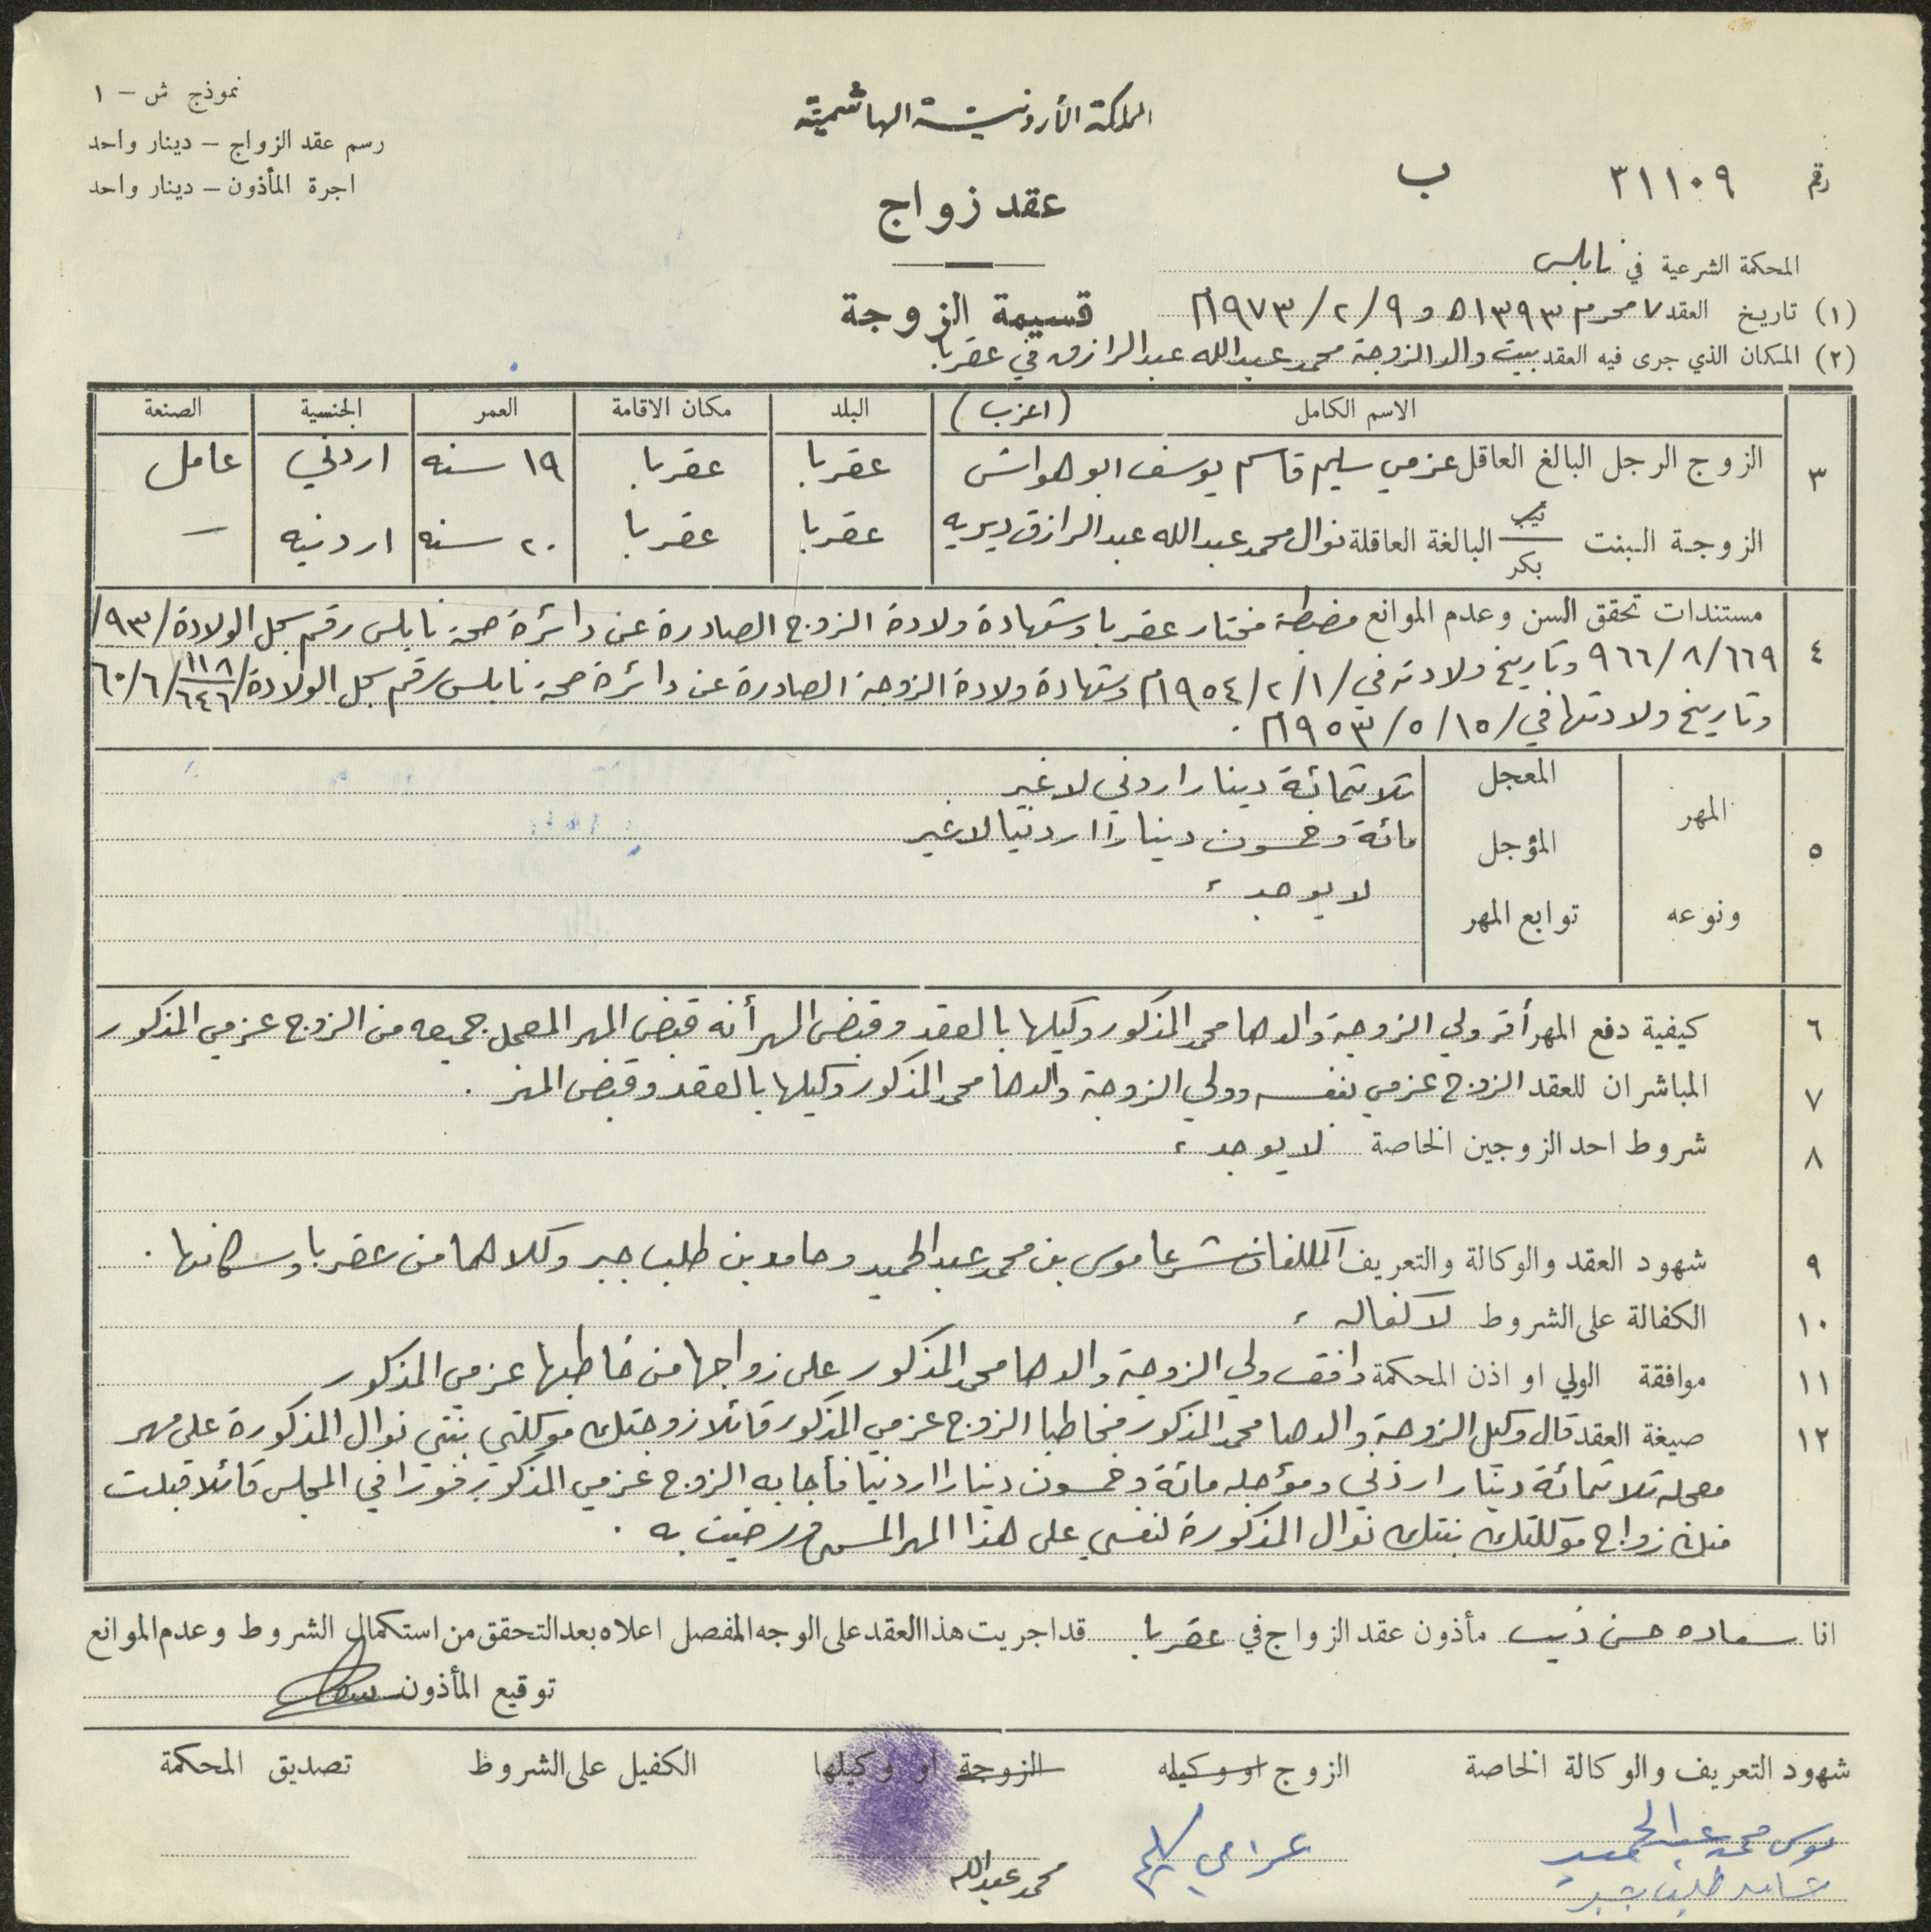 نموذج ش - ١
رسم عقد الزواج - دينار واحد
اجرة المأذون - دينار واحد
المملكة الأردنية الهاشمية
عقد زواج
قسيمة الزوجة
رقم ٣١١٠٩ ب
المحكمة الشرعية في نابلس
(١) تاريخ العقد ٧ محرم ١٣٩٣ ه و ٩/٢/١٩٧٣م
(٢) المكان الذي جرى فيه العقد بيت والد الزوجة محمد عبد الله عبد الرازق في عقربا.
الاسم الكامل (اعزب) البلد مكان الاقامة العمر الجنسية الصنعة
٣ الزوج الرجل البالغ العاقل عزمي سليم قاسم يوسف ابو هواش عقربا عقربا ١٩ سنه اردني عامل
الزوجة البنت ثيب بكر البالغة العاقلة نوال محمد عبد الله عبد الرازق ديريه عقربا عقربا ٢٠ سنه اردنيه -
٤ مستندات تحقق السن وعدم الموانع مضبطة مختار عقربا وشهادة ولادة الزوج الصادرة عن دائرة صحة نابلس رقم سجل الولادة /٩٣/
٩٦٦/٨/٦٦٩ وتاريخ ولادته في /١/٢/١٩٥٤م وشهادة ولادة الزوجة الصادرة عن دائرة صحة نابلس رقم سجل الولادة /١١٨/٦٤٦/٦/٦٠
وتاريخ ولادتها في /١٥/٥/١٩٥٣م.
٥ المهر ونوعه
المعجل ثلاثمائة دينار اردني لا غير
المؤجل مائة وخمسون دينارا اردنيا لا غير
توابع المهر لا يوجد،
٦ كيفية دفع المهر أقر ولي الزوجة والدها محمد المذكور وكيلها بالعقد وقبض المهر أنه قبض المهر المعجل جميعه من الزوج عزمي المذكور
٧ المباشران للعقد الزوج عزمي بنفسه وولي الزوجة والدها محمد المذكور وكيلها بالعقد وقبض المهر.
٨ شروط احد الزوجين الخاصة لا يوجد،
٩ شهود العقد والوكالة والتعريف المكلفان شرعا موسى بن محمد عبد الحميد وحامد بن طلب جبر وكلاهما من عقربا وسكانها.
١٠ الكفالة على الشروط لا كفاله،
١١ موافقة الولي او اذن المحكمة وافق ولي الزوجة والدها محمد المذكور على زواجها من خاطبها عزمي المذكور
١٢ صيغة العقد قال وكيل الزوجة والدها محمد المذكور مخاطبا الزوج عزمي المذكور قائلا زوجتك موكلتي بنتي نوال المذكورة على مهر
معجله ثلاثمائة دينار اردني ومؤجله مائة وخمسون دينارا اردنيا فأجابه الزوج عزمي المذكور فورا في المجلس قائلا قبلت
منك زواج موكلتك بنتك نوال المذكورة لنفسي على هذا المهر المسمى ورضيت به.
انا سعاده حسن ذيب مأذون عقد الزواج في عقربا قد اجريت هذا العقد على الوجه المفصل اعلاه بعد التحقق من استكمال الشروط وعدم الموانع
توقيع المأذون
شهود التعريف والوكالة الخاصة الزوج او وكيله الزوجة او وكيلها الكفيل على الشروط تصديق المحكمة
موسى محمد عبد الحميد
عزمي سليم
محمد عبد الله